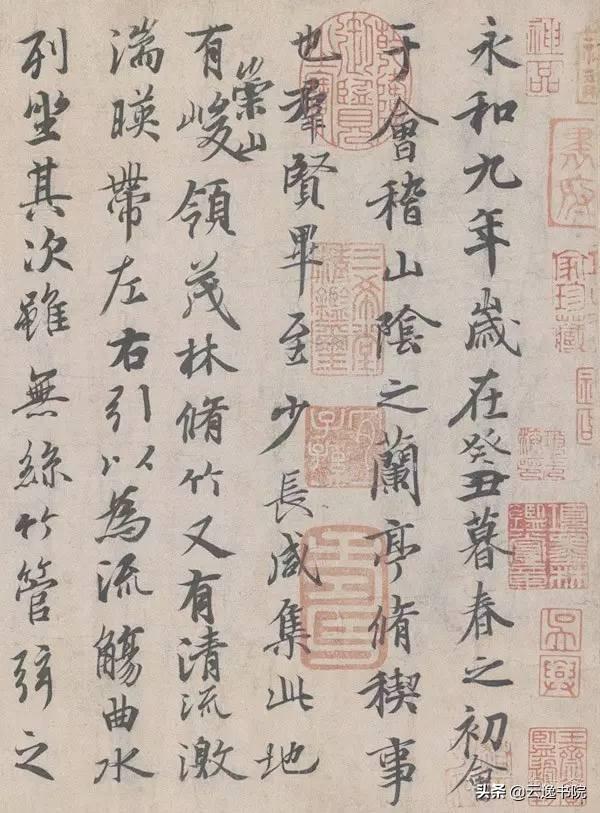 神品
永和九年歲在癸丑暮春之初會
于會稽山陰之蘭亭脩禊事
也羣賢畢至少長咸集此地
有崇山峻領茂林脩竹又有清流激
湍暎帶左右引以為流觴曲水
列坐其次雖無絲竹管弦之
三希堂精鑑璽
宜子孫
头条 @云逸书院